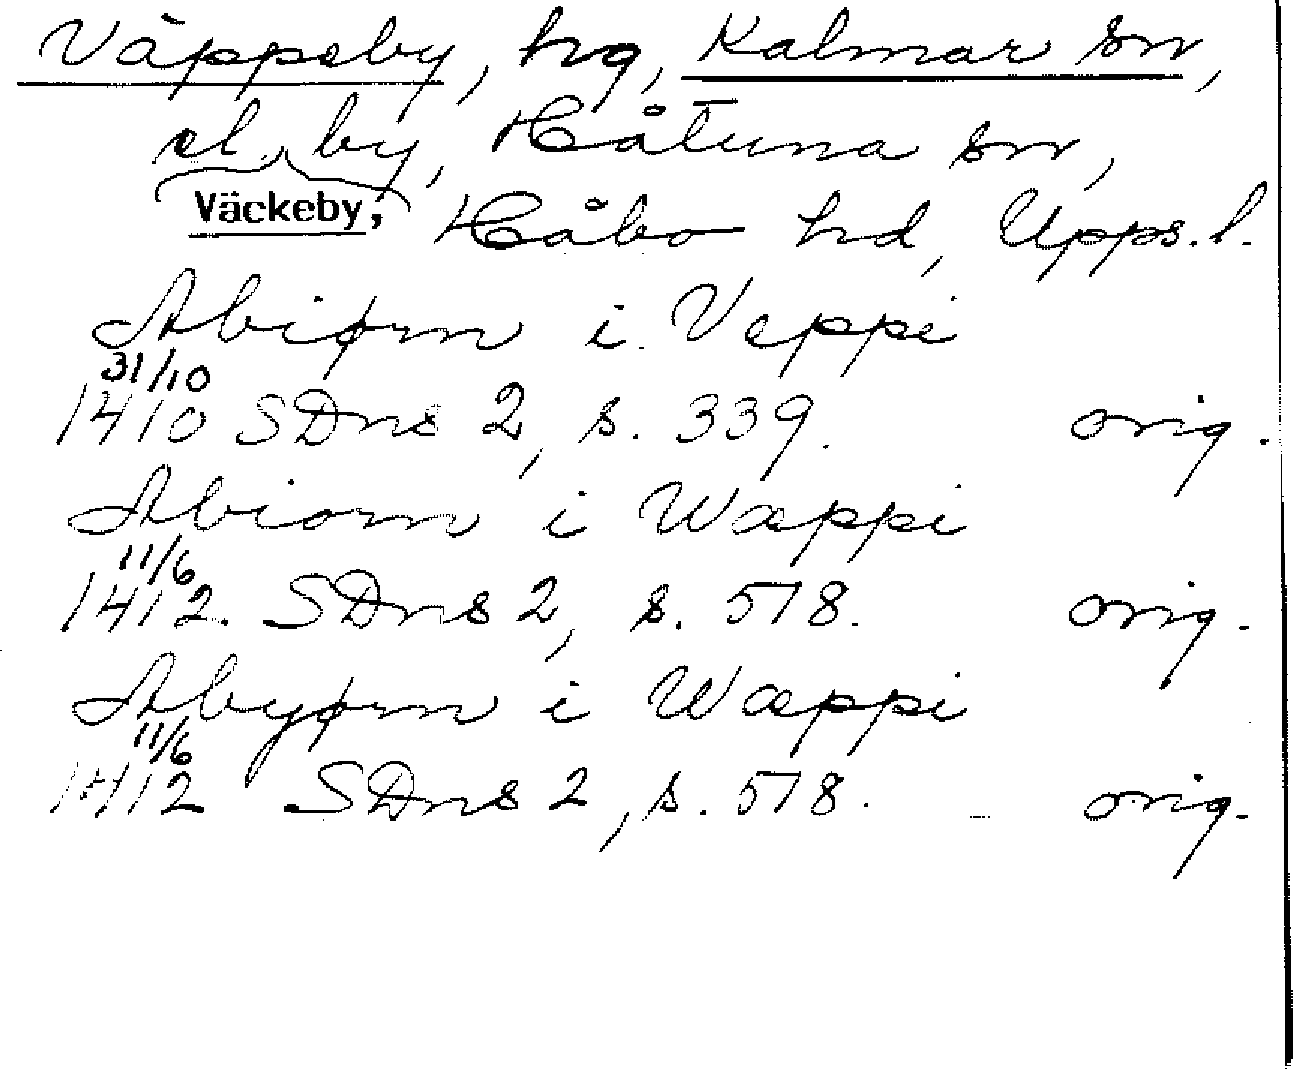 Väppeby, hg, Kalmar sn,
el. by, Håtuna sn,
Väckeby,
Håbo hd, Upps. l.
Abiørn i Veppi
31/10
1410 SDns 2, s. 339. orig.
Abiorn i Wæppi
11/6
1412. SDns 2, s. 518. orig.
Abyørn i Wæppi
11/6
1412 SDns 2, s. 518. orig.